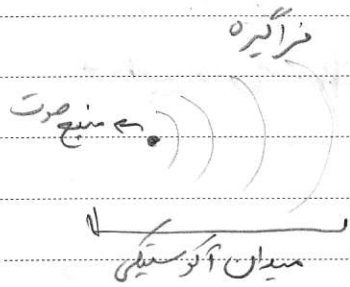 فراگیره
منبع صوت
میدان آکوستیکی